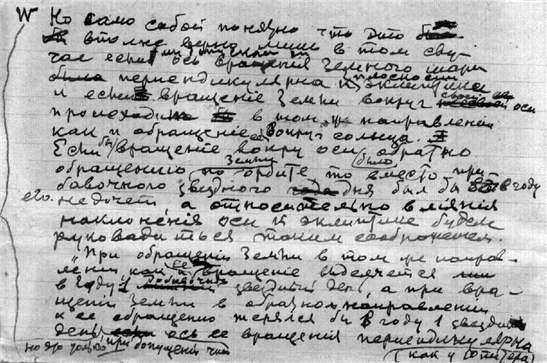 W Но само собой понятно что это
вполне верно лишь в том слу-
чае если допустим ось вращения Земного шара
перпендикулярна к плоскости эклиптики
и если вращение Земли вокруг своей оси
происходит в том же направлении
как и обращение вокруг солнца.
Если бы вращение вокруг оси обратно
обращению Земли по орбите, то вместо при-
бавочного звездного дня был бы в году
его недочет, а относительно влияния
наклонения оси к эклиптике будем
руководиться таким соображением.
"При обращении Земли в том же направ-
лении как и её вращение является
в году 1 звездный день, а при вра-
щении Земли в обратном направлении
к ее обращению терялся бы в году 1 звездный
день ось ее вращения перпендикулярна
но это только при допущении что (как у Юпитера)